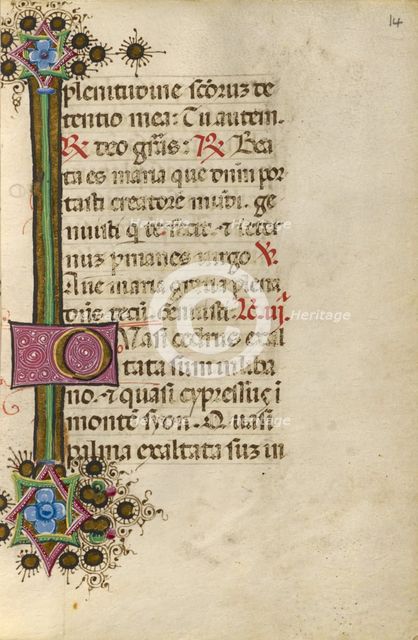 14
plenitudine scõruz de
tentio mea: Tu autem.
℟ deo grãs: ℟ Bea
ta es maria que dnm̃ por
tasti creatorẽ mũdi. ge
nuisti q̃ te fecit. et eter
nuz ꝑmanes uirgo ℣
Aue maria gratia plena
Genuisti. 
Q Vasi cedrus exal
tata sum in liba
no. et quasi cypressus ĩ
montẽ syon. Quasi
palma exaltata suz in
Heritage
Images